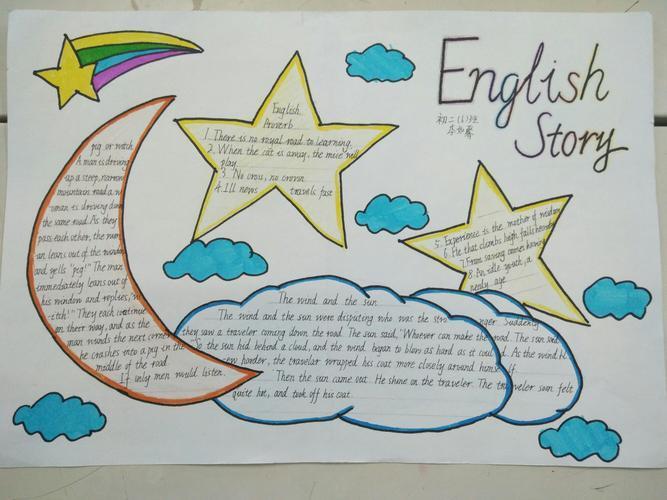 English
Story
初二(6)班
English
Proverb
1. There is no royal road to learning.
2. When the cat is away, the mice will
play.
3. No cross, no crown
4. Ill news travels fast
5. Experience is the mother of wisdom
6. He that climbs high falls heavily
7. From saving comes having
8. An idle youth, a
needy age
pig or witch
A man is driving
up a steep, narrow
mountain road. a w
oman is driving down
the same road. As they
pass each other, the wom
an leans out of the window
and yells "pig!" The man
immediately leans out of
his window and replies, "w
itch!" They each continue
on their way, and as the
man rounds the next corner
he crashes into a pig in the
middle of the road.
If only men would listen.
The wind and the sun
The wind and the sun were disputing who was the stronger. Suddenly
they saw a traveler coming down the road. The sun said, "Whoever can make the road. The sun and
So the sun hid behind a cloud, and the wind began to blow as hard as it could. As the wind bl
ew harder, the travelar wrapped his coat more closely around himself.
Then the sun came out. He shine on the traveler. The traveler soon felt
quite hot, and took off his coat.